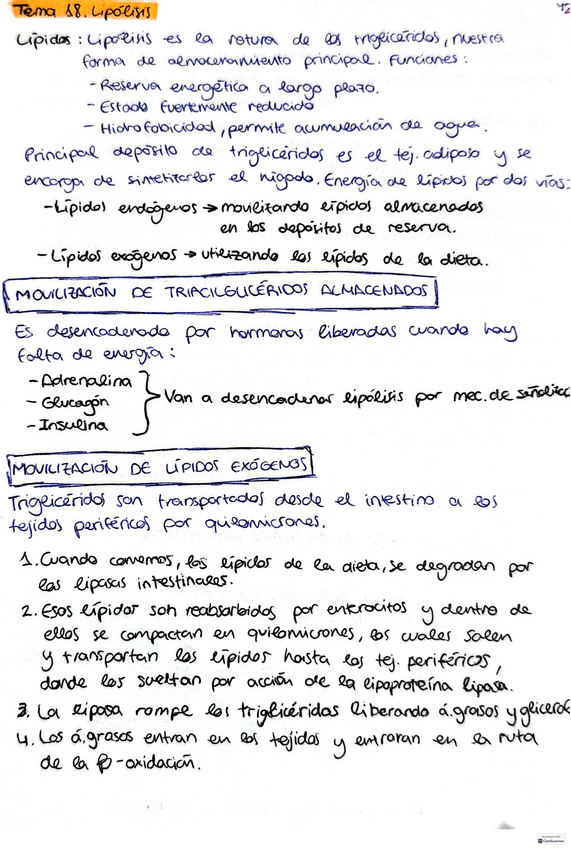 Tema 18. Lipólisis
42
Lípidos: Lipólisis es la rotura de los triglicéridos, nuestra
forma de almacenamiento principal. Funciones:
- Reserva energética a largo plazo.
- Estado fuertemente reducido
- Hidrofobicidad, permite acumulación de agua.
Principal depósito de triglicéridos es el tej. adiposo y se
encarga de sintetizarlos el hígado. Energía de lípidos por dos vías:
- Lípidos endógenos → movilizando lípidos almacenados
en los depósitos de reserva.
- Lípidos exógenos → utilizando los lípidos de la dieta.
MOVILIZACIÓN DE TRIACILGLICÉRIDOS ALMACENADOS
Es desencadenado por hormonas liberadas cuando hay
falta de energía:
- Adrenalina
- Glucagón
- Insulina
Van a desencadenar lipólisis por mec. de señalizac
MOVILIZACIÓN DE LÍPIDOS EXÓGENOS
Triglicéridos son transportados desde el intestino a los
tejidos periféricos por quilomicrones.
1. Cuando comemos, los lípidos de la dieta, se degradan por
las lipasas intestinales.
2. Esos lípidos son reabsorbidos por enterocitos y dentro de
ellos se compactan en quilomicrones, los cuales salen
y transportan los lípidos hasta los tej. periféricos,
donde los sueltan por acción de la lipoproteína lipasa.
3. La lipasa rompe los triglicéridos liberando á.grasos y glicerol
4. Los á.grasos entran en los tejidos y entraran en la ruta
de la β-oxidación.
CamScanner